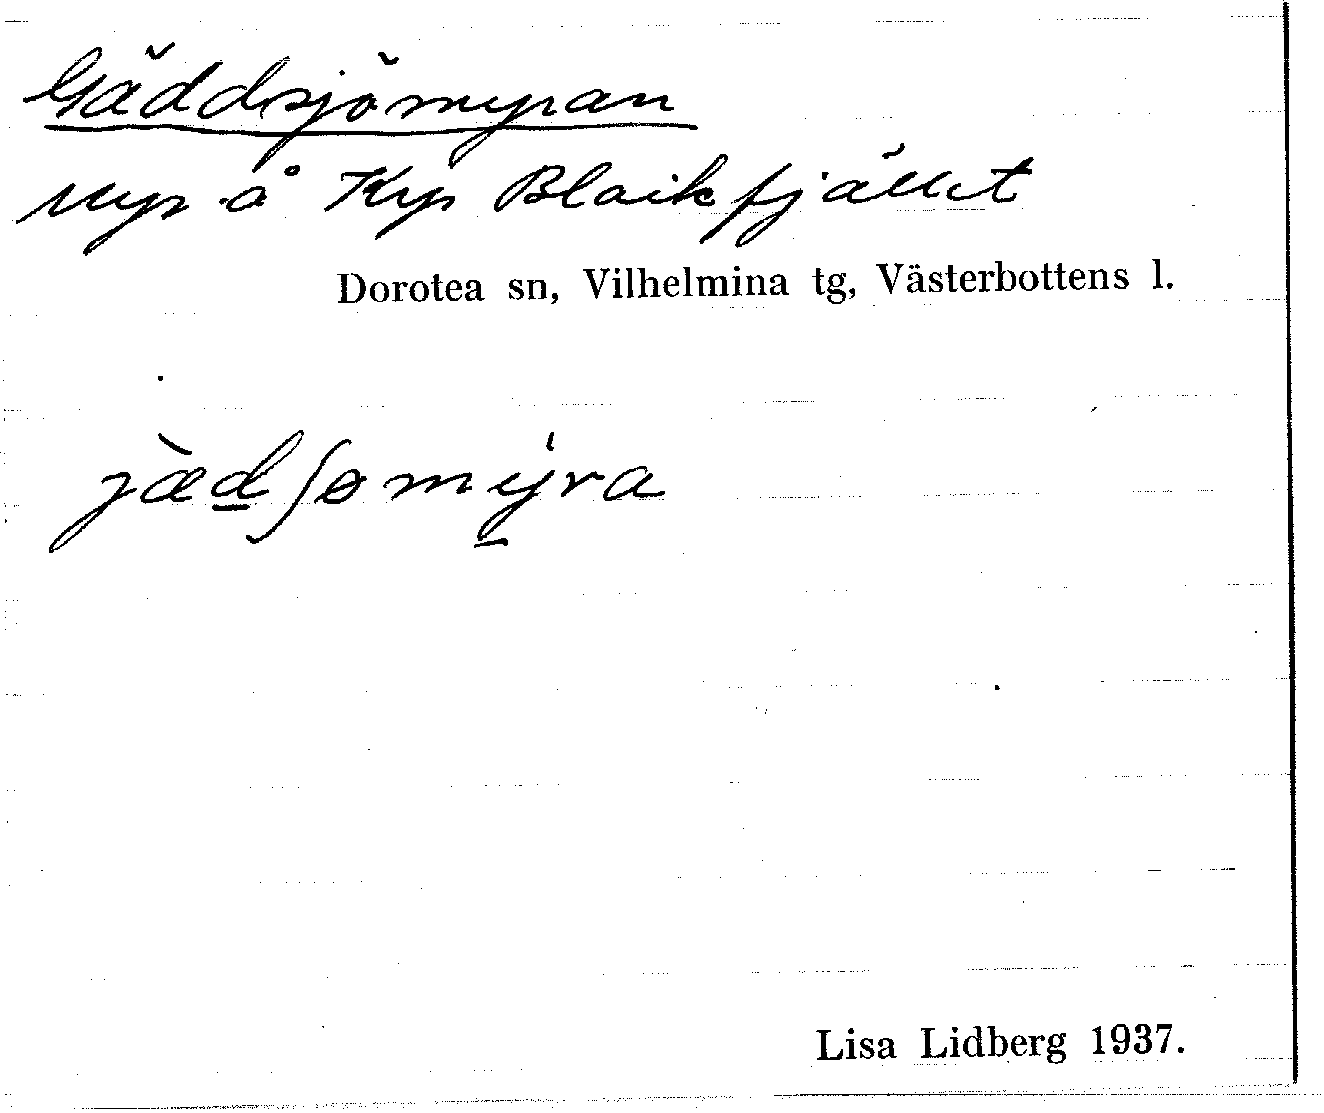 Gäddsjömyran
Myr å Krp Blaikfjället
Dorotea sn, Vilhelmina tg, Västerbottens l.
jæ̀dʃømýra
Lisa Lidberg 1937.